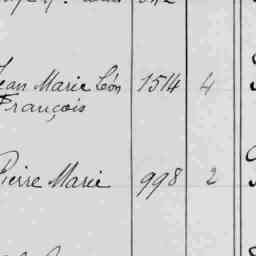 Jean Marie Léon 1514 4
François
Pierre Marie 998 2